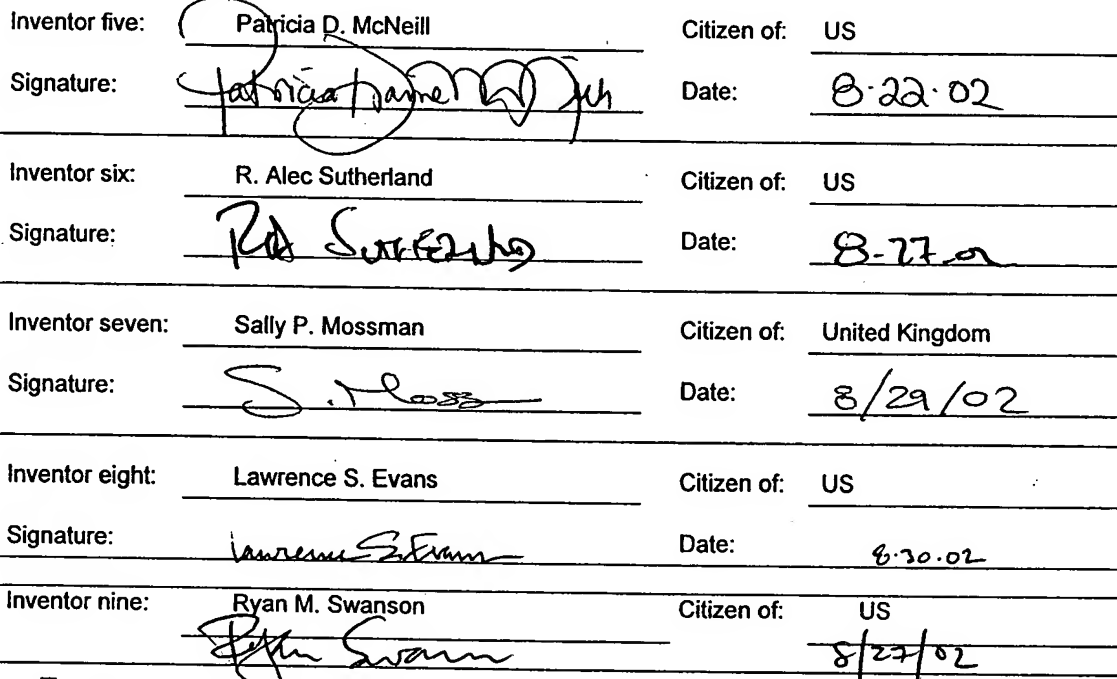 Inventor five: Patricia D. McNeill Citizen of: US
Signature: Patricia Daine McNeill Date: 8-22-02
Inventor six: R. Alec Sutherland Citizen of: US
Signature: RA Sutherland Date: 8-27-02
Inventor seven: Sally P. Mossman Citizen of: United Kingdom
Signature: S. Moss Date: 8/29/02
Inventor eight: Lawrence S. Evans Citizen of: US
Signature: Lawrence S. Evans Date: 8.30.02
Inventor nine: Ryan M. Swanson Citizen of: US
Ryan Swanson 8/27/02